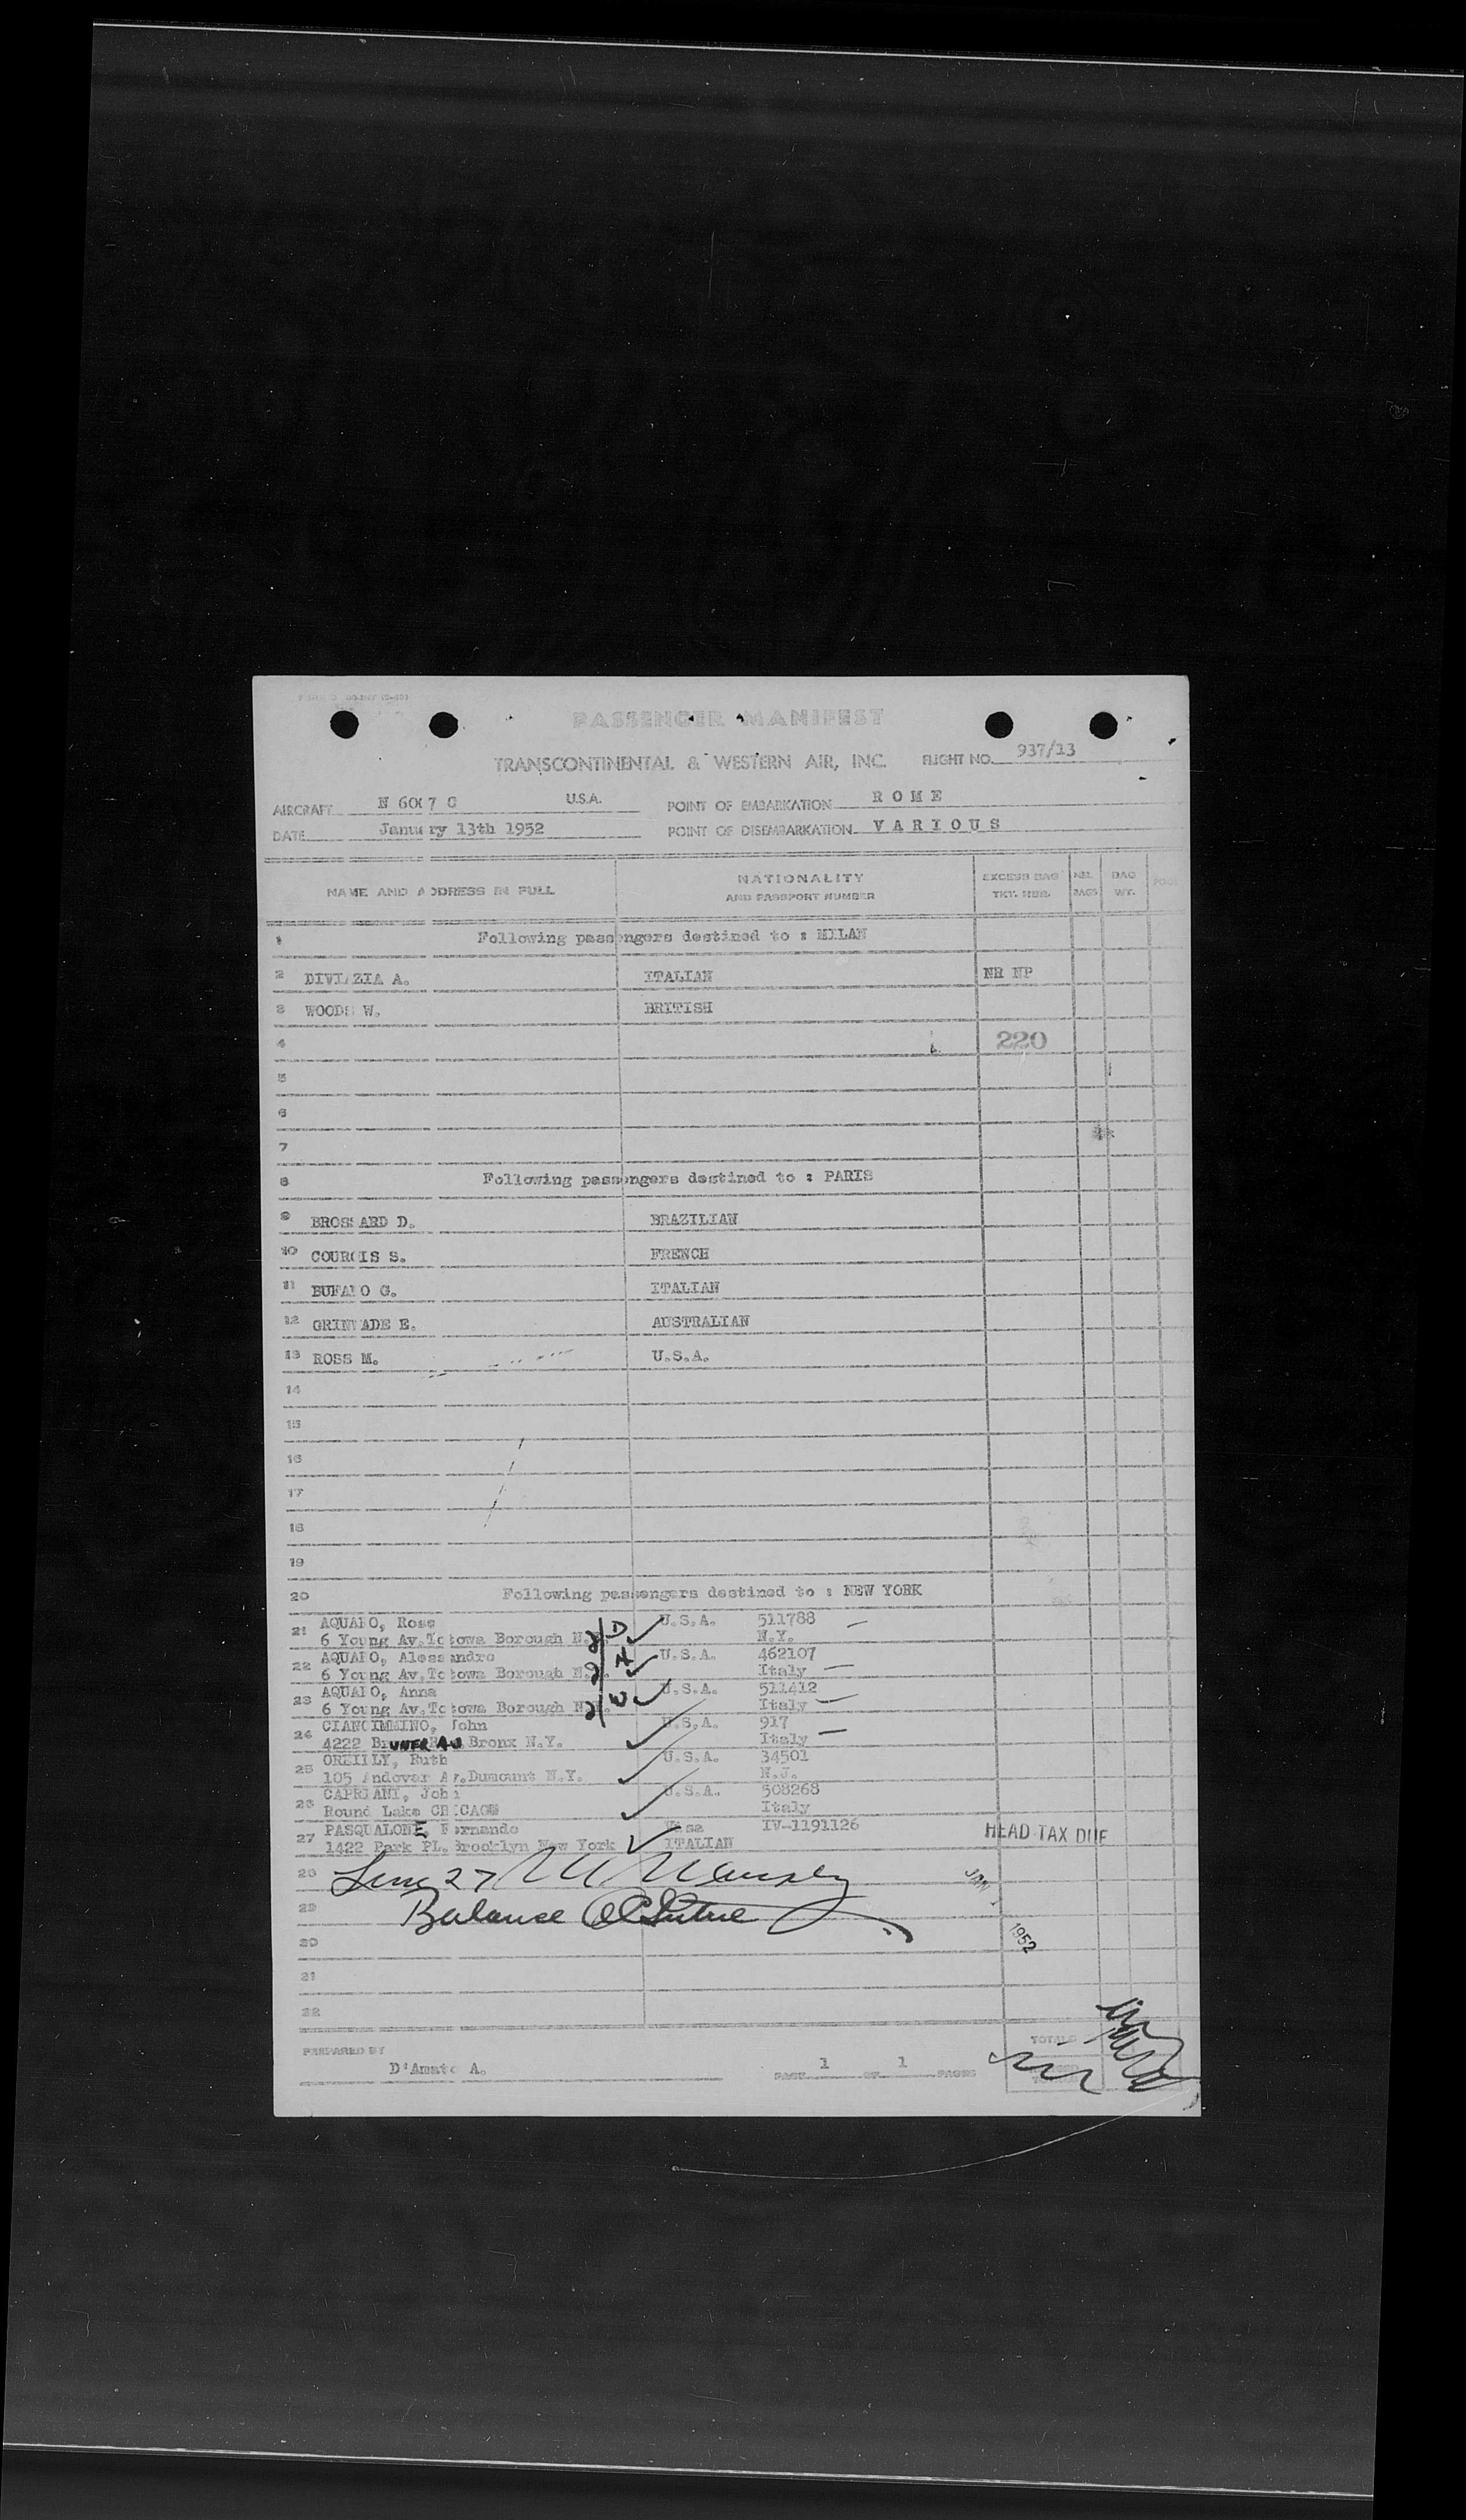 PASSENGER MANIFEST
TRANSCONTINENTAL & WESTERN AIR, INC. FLIGHT NO. 937/13
AIRCRAFT U.S.A. POINT OF EMBARKATION ROME
DATE January 13th 1952 POINT OF DISEMBARKATION VARIOUS
NAME AND ADDRESS IN FULL NATIONALITY AND PASSPORT NUMBER EXCESS BAG TKT. NBR. NBR. BAGS BAG WT.
1 Following passengers destined to : MILAN
2 A. ITALIAN NR NP
3 WOODS W. BRITISH
4 220
5
6
7
8 Following passengers destined to : PARIS
9 BROSSARD D. BRAZILIAN
10 S. FRENCH
11 G. ITALIAN
12 E. AUSTRALIAN
13 ROSS M. U.S.A.
14
15
16
17
18
19
20 Following passengers destined to : NEW YORK
21 Rose U.S.A. 511788
6 Young Av. Totowa Borough D N.Y.
22 Alessandro U.S.A. 462107
6 Young Av. Totowa Borough H Italy
23 Anna U.S.A. 511412
6 Young Av. Totowa Borough W Italy
24 CIANCIMMINO, John U.S.A. 917
4222 Bronx N.Y. Italy
25 OREILLY, Ruth U.S.A. 34501
105 Andover Av. Dumount N.Y. N.J.
26 CAPRIANI, John U.S.A. 508268
Round Lake CHICAGO Italy
27 PASQUALONE, Fernando Visa IV-1191126
1422 Park PL. Brooklyn New York ITALIAN HEAD TAX DUE
28 Line 27 JAN
29 Balance
20 1952
21
22
PREPARED BY TOTALS
D'Amato A. PAGE 1 OF 1 PAGES